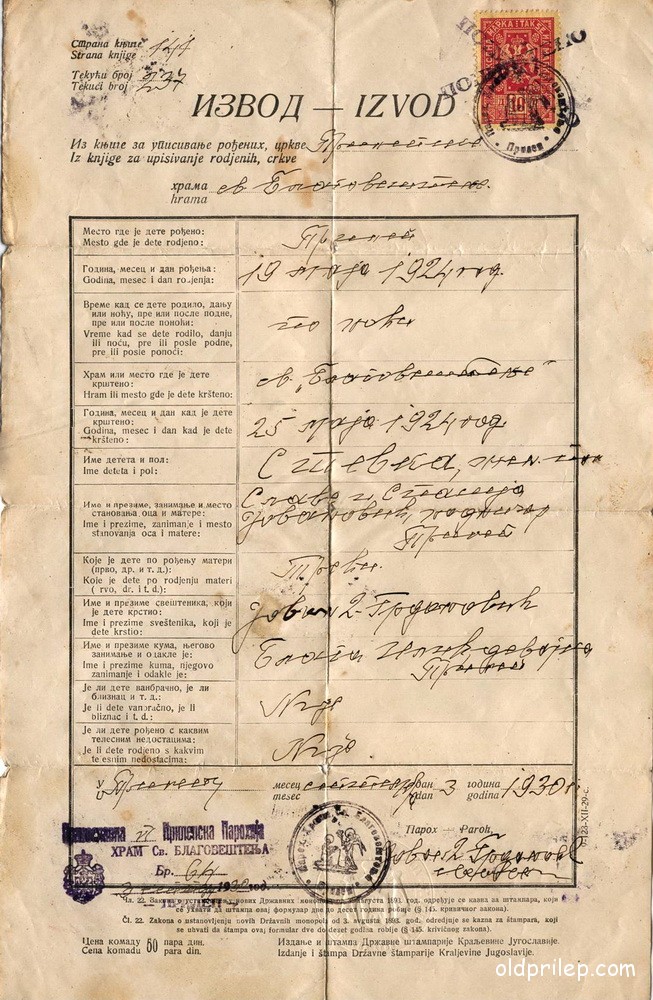 Страна књиге 141
Strana knjige
Текући број 237
Tekući broj
ИЗВОД — IZVOD
Из књиге за уписивање рођених, цркве
Iz knjige za upisivanje rodjenih, crkve
храма св. Благовештение
hrama
Место где је дете рођено: Прилеп
Mesto gde je dete rodjeno:
Година, месец и дан рођења: 19 маја 1924 год.
Godina, mesec i dan rodjenja:
Време кад се дете родило, дању
или ноћу, пре или после подне,
пре или после поноћи: по ноћи
Vreme kad se dete rodilo, danju
ili noću, pre ili posle podne,
pre ili posle ponoći:
Храм или место где је дете
крштено: св. „Благовештение"
Hram ili mesto gde je dete kršteno:
Година, месец и дан кад је дете
крштено: 25 маја 1924 год
Godina, mesec i dan kad je dete
kršteno:
Име детета и пол: Стевка, жен.
Ime deteta i pol:
Име и презиме, занимање и место
становања оца и матере: Славе и
Ime i prezime, zanimanje i mesto Јовановић,
stanovanja oca i matere: Прилеп
Које је дете по рођењу матери
(прво, др. и т. д.): Треће.
Koje je dete po rodjenju materi
(prvo, dr. i t. d.):
Име и презиме свештеника, који
је дете крстио: Јован
Ime i prezime sveštenika, koji je
dete krstio:
Име и презиме кума, његово
занимање и одакле је: Благи
Ime i prezime kuma, njegovo Прилеп
zanimanje i odakle je:
Је ли дете ванбрачно, је ли
близнац и т. д.: Није
Je li dete vanbračno, je li
bliznac i t. d.:
Је ли дете рођено с каквим
телесним недостацима: Није
Je li dete rodjeno s kakvim
telesnim nedostacima:
У Прилепу месец септембра дан 3 година 1930 г.
U mesec dan godina
Православна II Прилепска Парохија
ХРАМ Св. БЛАГОВЕШТЕЊА
Бр. 64
1930 год.
ПРИЛЕП
Парох — Paroh,
Јован
Чл. 22. Закона о установљењу нових Државних монопола од 3. августа 1893. год. одређује се казна за штампара, који
се ухвати да штампа овај формулар две до десет година робије (§ 145. кривичног закона).
Čl. 22. Zakona o ustanovljenju novih Državnih monopola od 3. avgusta 1893. god. odredjuje se kazna za štampara, koji
se uhvati da štampa ovaj formular dve do deset godina robije (§ 145. krivičnog zakona).
Цена комаду 50 пара дин.
Cena komadu para din.
Издање и штампа Државне штампарије Краљевине Југославије.
Izdanje i štampa Državne štamparije Kraljevine Jugoslavije.
oldprilep.com